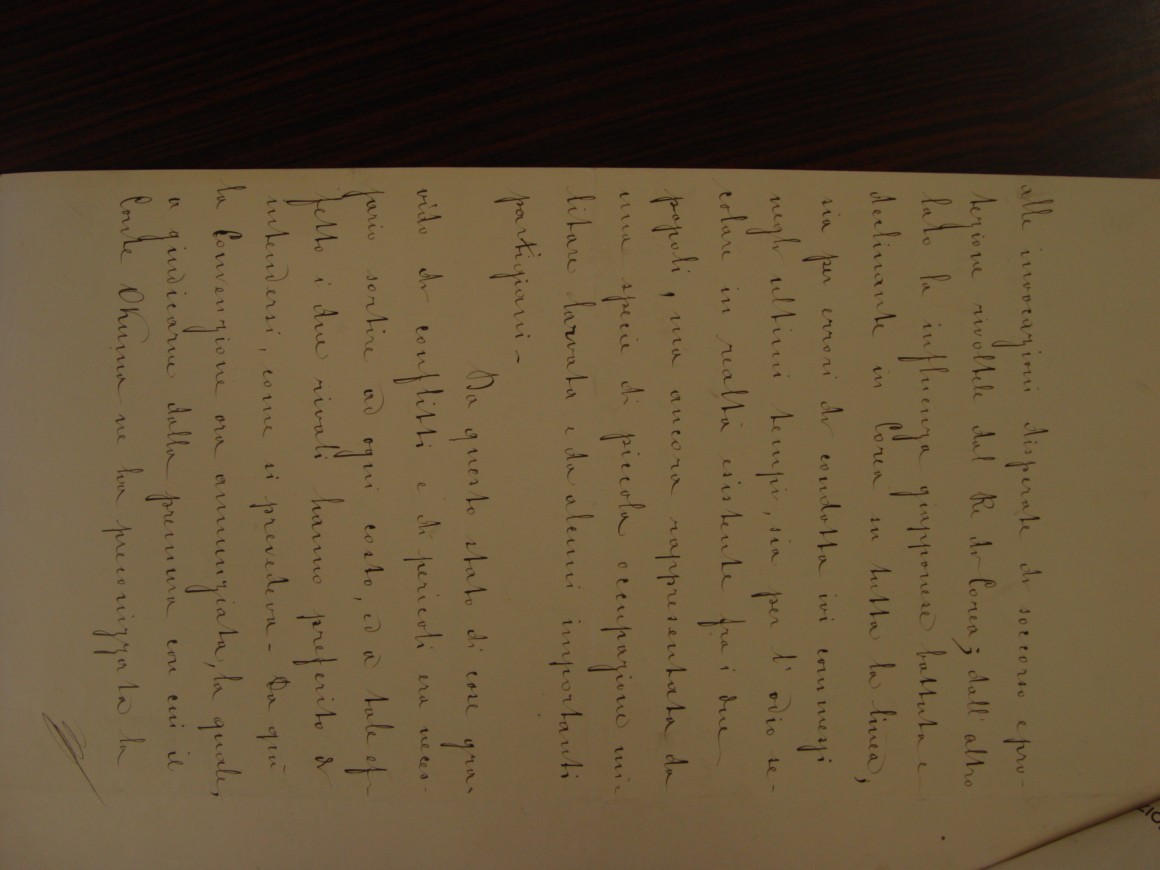 alle invocazioni disperate di soccorso e pro-
tezione rivoltele dal Re di Corea; dall'altro
lato la influenza giapponese battuta e
declinante in Corea su tutta la linea,
sia per errori di condotta ivi commessi
negli ultimi tempi, sia per l'odio se-
colare in realtà esistente fra i due
popoli, ma ancora rappresentata da
una specie di piccola occupazione mi-
litare larvata e da alcuni importanti
partigiani -
Da questo stato di cose gra-
vido di conflitti e di pericoli era neces-
sario sortire ad ogni costo, ed a tale ef-
fetto i due rivali hanno preferito d'
intendersi, come si prevedeva - Da qui
la Convenzione ora annunziata, la quale,
a giudicarne dalla premura con cui il
Conte Okuma ne ha preconizzata la